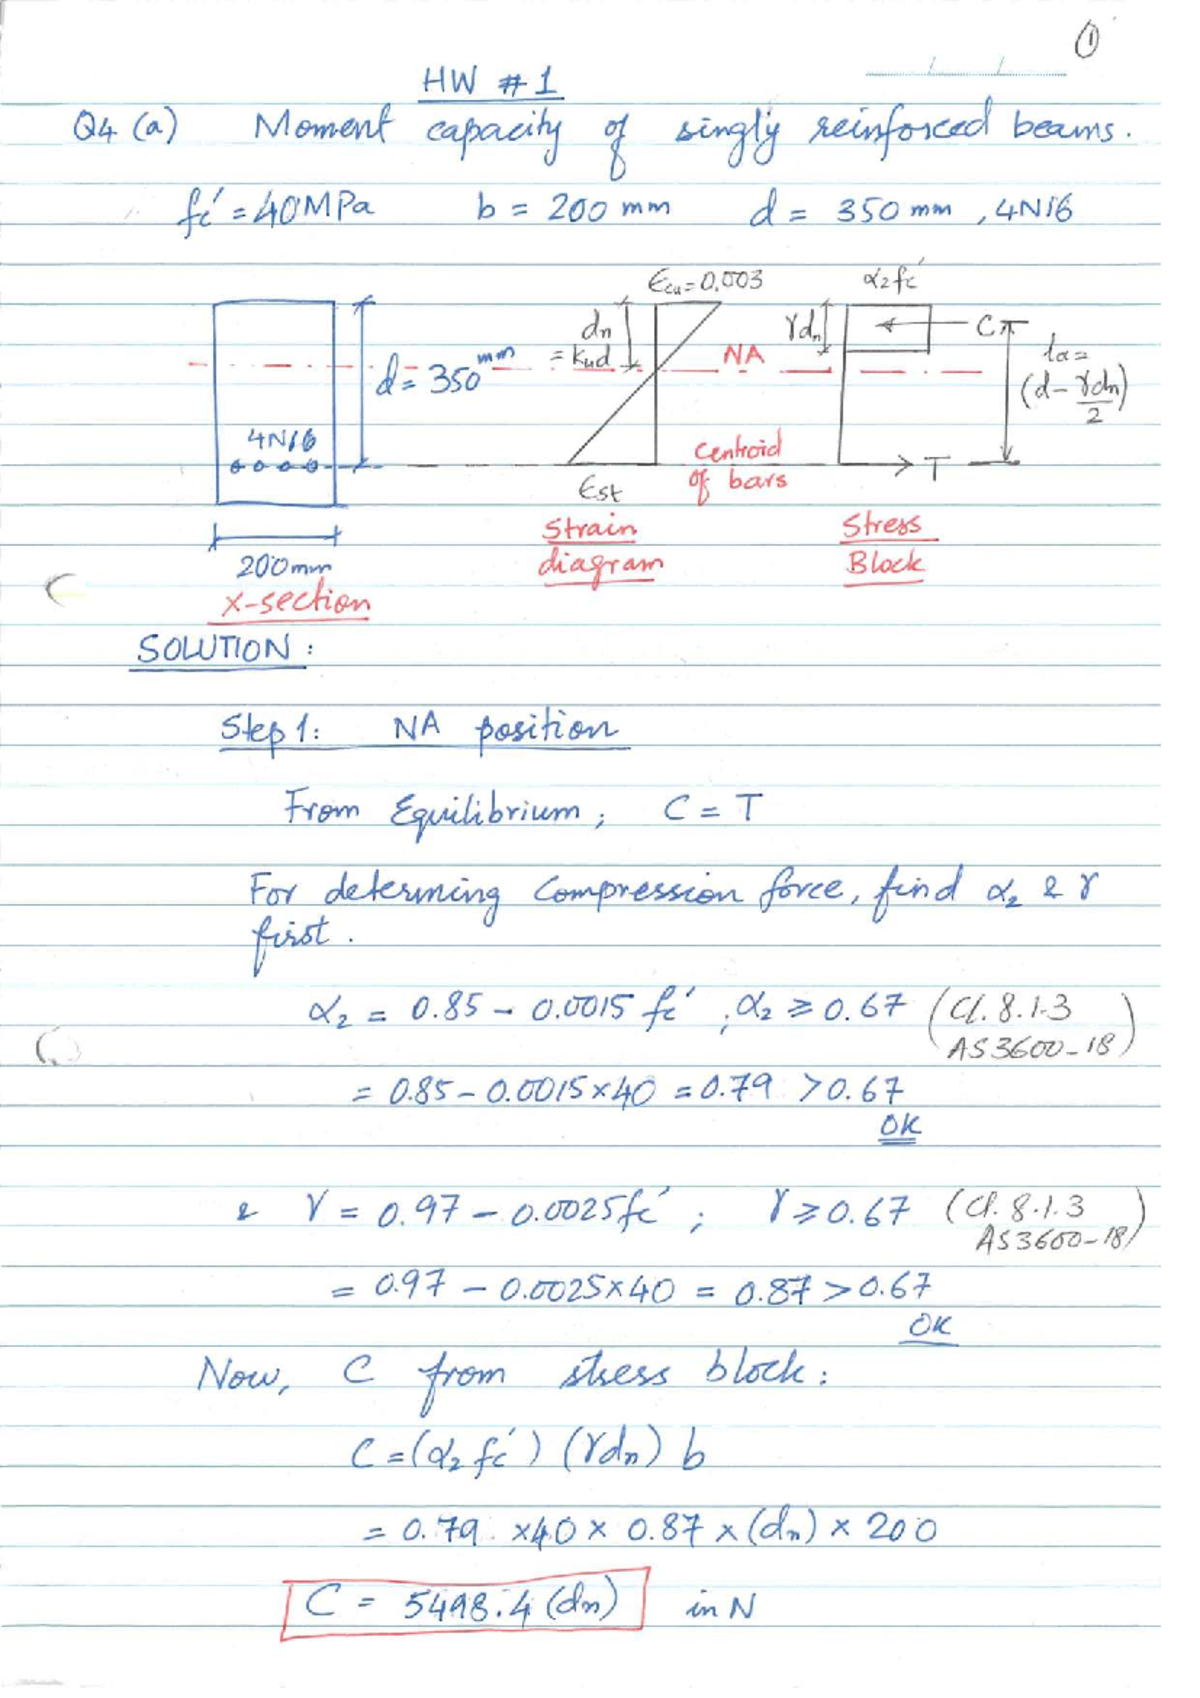 ①
HW # 1
Q4 (a) Moment capacity of singly reinforced beams.
fc' = 40MPa b = 200 mm d = 350 mm , 4N16
Ecu = 0.003 α2fc'
dn = kud γdn C
NA
la = (d - γdn/2)
d = 350 mm
4N16
Centroid of bars
T
Est
Strain diagram
Stress Block
200mm
X-section
SOLUTION :
Step 1: NA position
From Equilibrium ; C = T
For determing Compression force, find α2 & γ
first .
α2 = 0.85 - 0.0015 fc' , α2 ≥ 0.67 (Cl. 8.1.3
AS3600-18)
= 0.85 - 0.0015 × 40 = 0.79 > 0.67
OK
& γ = 0.97 - 0.0025fc' ; γ ≥ 0.67 (Cl. 8.1.3
AS3600-18)
= 0.97 - 0.0025×40 = 0.87 > 0.67
OK
Now, C from stress block :
C = (α2 fc') (γdn) b
= 0.79 ×40 × 0.87 × (dn) × 200
C = 5498.4 (dn) in N